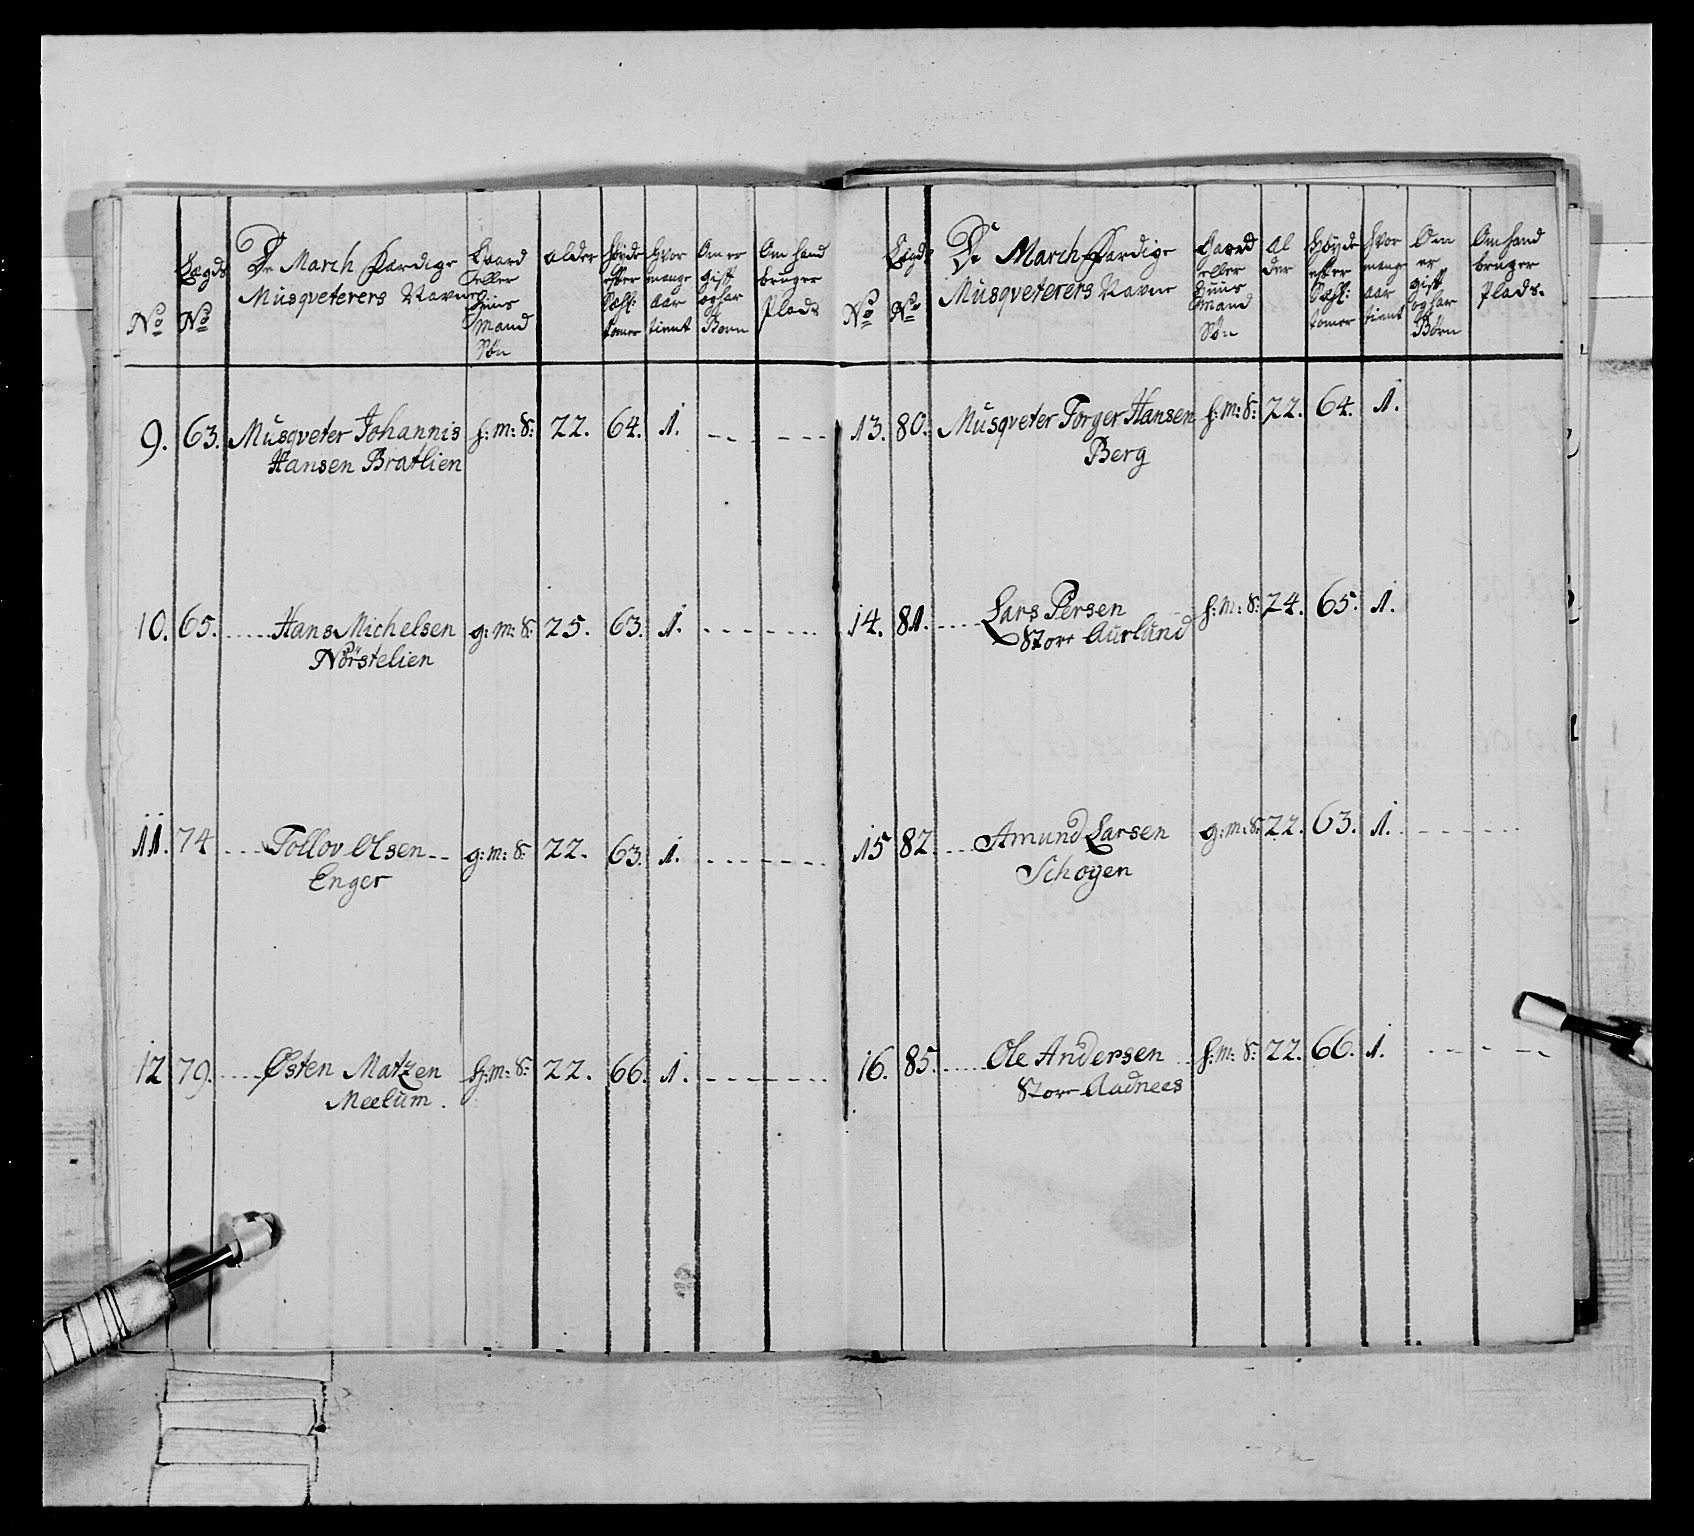 No
Lægds No
De March Færdige Musqveterers Navne
Gaard eller Huus Mand Søn
alder
Høyde efter tomer
Hvor mange aar tient
Om er gift og har Børn
Om hand bruger Plads
9. 63. Musqveter Johannis f: m: S: 22. 64. 1.
Hansen Bratlien
10. 65. Hans Michelsen g: m: S: 25. 63. 1.
Nörstelien
11. 74 Tollov Olsen g: m: S: 22. 63. 1.
Enger
12 79. Østen Matzen h: m: S: 22. 66. 1.
Meelum.
No
Lægds No
De March Færdige Musqveterers Navne
Gaard eller Huus Mand Søn
Al der
Høyde efter tomer
Hvor mange aar tient
Om er gift og har Børn
Om hand bruger Plads.
13. 80. Musqveter Torger Hansen f: m: S: 22. 64. 1.
Berg
14. 81. Lars Persen f: m: S: 24. 65. 1.
Store Aurlund
15 82. Amund Larsen g: m: S: 22. 63. 1.
Schøyen
16. 85. Ole Andersen f: m: S: 22. 66. 1.
Store Aadnees